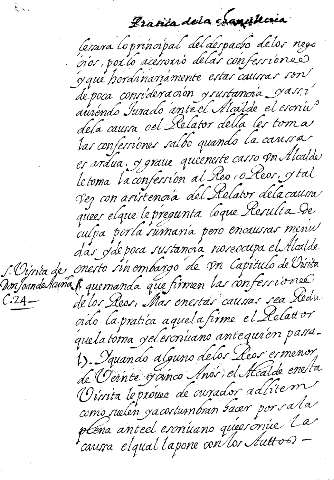 Pratica de la chansilleria
lesara lo principal del despacho de los nego
cios, por lo acesorio de las confessiones
y que hordinariamente estas causas son
de poca consideraçion y sustancia, y assi
auiendo Jurado ante el Alcalde el escriuº
de la causa o el Relator della les toma
las confessiones salbo quando la caussa
es ardua, y graue que en este casso vn Alcalde
le toma la confession al Reo o Reos, y tal
vez con asistencia del Relator de la causa
que es el que le pregunta lo que Resulta de
culpa por la sumaria pero en caussas menu
das y de poca sustancia no se ocupa el Alcalde
en esto sin embargo de vn Capitulo de Visita
s. Visita de
Don Joan de Acuña
C. 24
que manda que firmen las confessiones
de los Reos, Mas en estas causas sea Redu
cido la pratica a que la firme el Relator
que la toma y el escriuano ante quien passa
Y quando alguno de los Reos es menor
de Veinte y cinco Anos, el Alcalde en esta
Visita le probee de curador ad litem
como suelen y acostumbran hacer por sala
plena ante el escriuano que escriue la
caussa el qual la pone con los Auttos